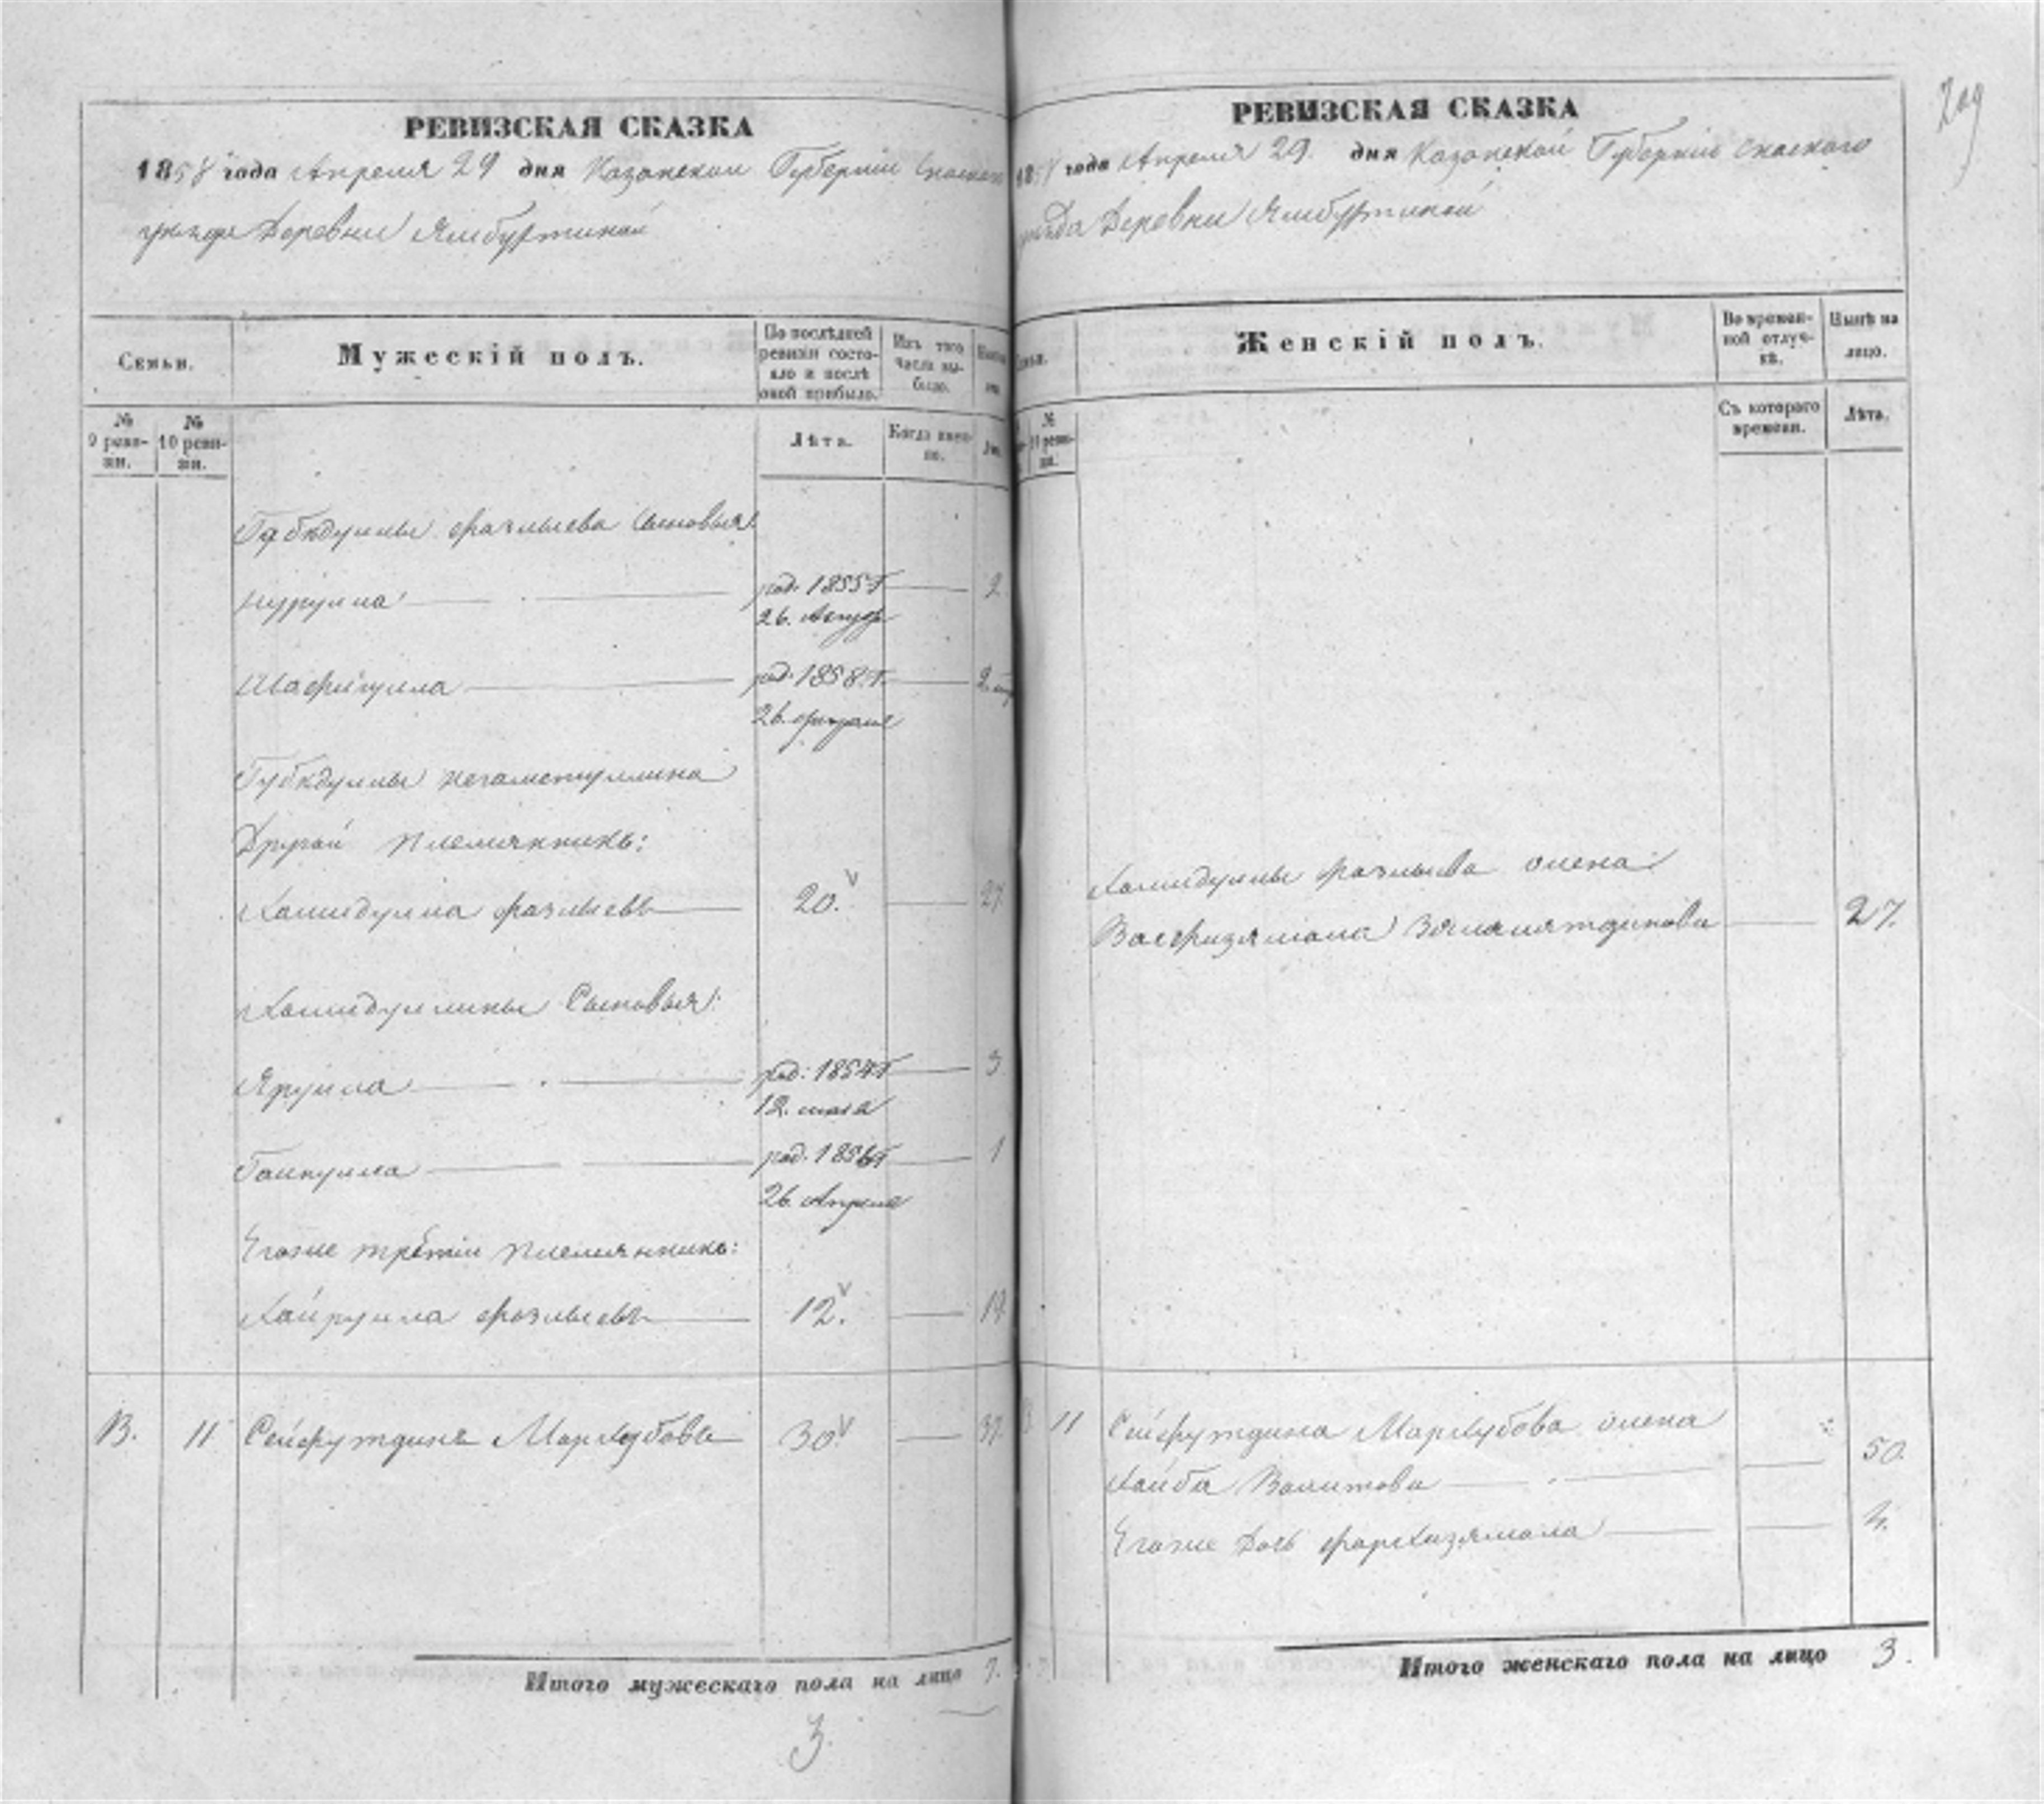 РЕВИЗСКАЯ СКАЗКА
1858 года Апреля 29 дня Казанской Губернии Спаского
уезда Деревни Ямбуртиной
Семьи.
Мужескій полъ.
По послѣдней ревизіи состояло и послѣ оной прибыло.
Изъ того числа выбыло.
№ 9 ревизіи.
№ 10 ревизіи.
Лѣта.
Когда именно.
Габидуллы Фазлыева Сыновья:
Нурулла род. 1855 г 2
26.
Шафигулла род. 1858 г. 2
26. февраля
Губидуллы Негаметуллина
Другой племянникъ:
Хамидулла Фазлыевъ 20. 27
Хамидуллины Сыновья:
Ярулла род. 1854 г 3
12. мая
Гайнулла род. 1856 г 1
26. Апреля
Егоже третіи племянникъ:
Хайрулла Фазлыевъ 12. 19
13. 11 Сейфутдинъ Мархубовъ 30 37
Итого мужескаго пола на лицо 7.
3
209
РЕВИЗСКАЯ СКАЗКА
1858 года Апреля 29. дня Казанской Губерніи Спаского
уезда Деревни Ямбуртиной
Женскій полъ.
Во временной отлучкѣ.
Нынѣ на лицо.
№ 10 ревизіи.
Съ котораго времени.
Лѣта.
Хамидуллы Фазлыева жена
Васфизямала Залялятдинова 27.
11 Сейфутдина Мархубова жена
Хайба Валитова 50.
Егоже дочь Фархизямала 4.
Итого женскаго пола на лицо 3.